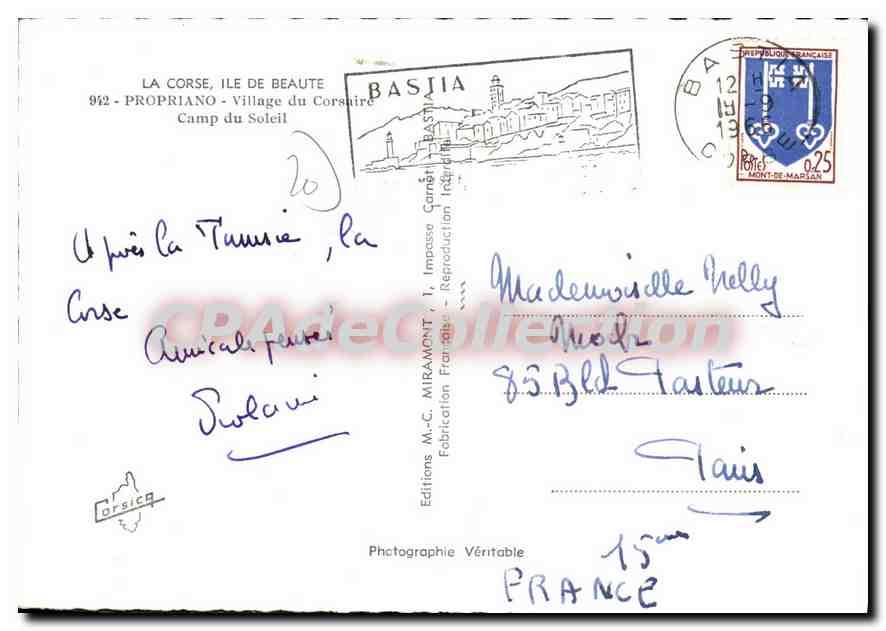 LA CORSE, ILE DE BEAUTE
942 - PROPRIANO - Village du Corsaire
Camp du Soleil
BASTIA
BASTIA
12 H
19-9
196
CORSE
REPUBLIQUE FRANÇAISE
Postes 0,25
MONT-DE-MARSAN
20
Après la Tunisie, la
Corse
Amicales pensées
Corsica
Editions M.-C. MIRAMONT, 1, Impasse Carnot - BASTIA
Fabrication Française - Reproduction Interdite
Mademoiselle Nelly
85 Bld Pasteur
Paris
15ème
FRANCE
Photographie Véritable
CPAdeCollection